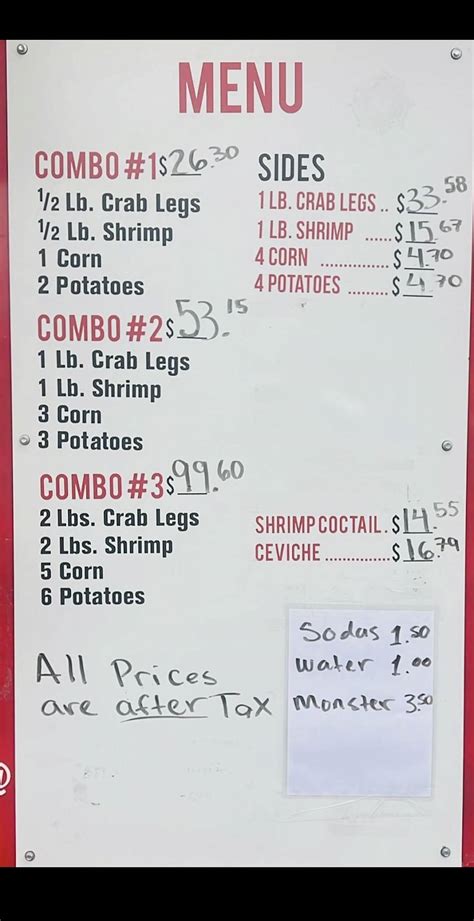 MENU
COMBO #1 $26.30
1/2 Lb. Crab Legs
1/2 Lb. Shrimp
1 Corn
2 Potatoes
COMBO #2 $53.15
1 Lb. Crab Legs
1 Lb. Shrimp
3 Corn
3 Potatoes
COMBO #3 $99.60
2 Lbs. Crab Legs
2 Lbs. Shrimp
5 Corn
6 Potatoes
SIDES
1 LB. CRAB LEGS .. $33.58
1 LB. SHRIMP ...... $15.67
4 CORN ............... $4.70
4 POTATOES ......... $4.70
SHRIMP COCTAIL . $14.55
CEVICHE .............. $16.79
All Prices
are after Tax
Sodas 1.50
water 1.00
Monster 3.50